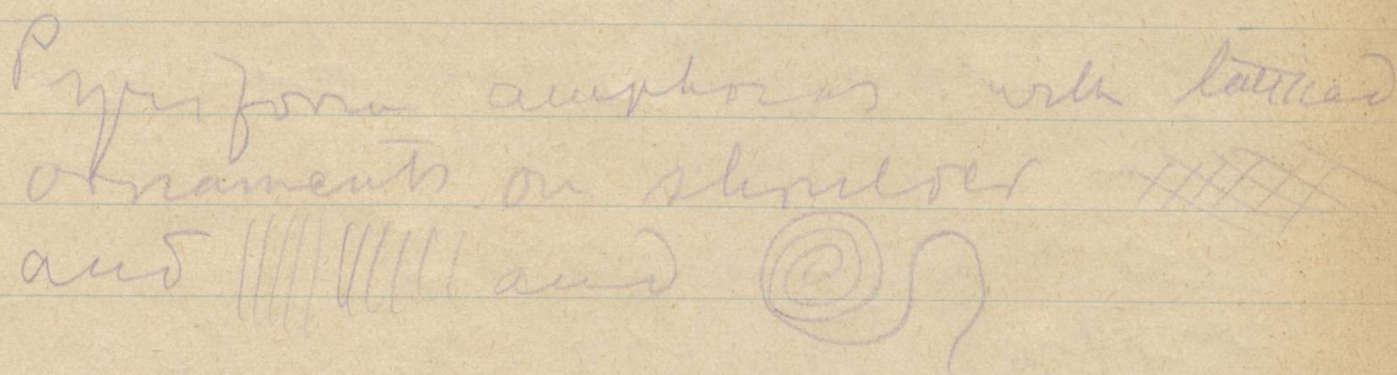 Pyriform amphoras with latticed
ornaments on shoulder
and and